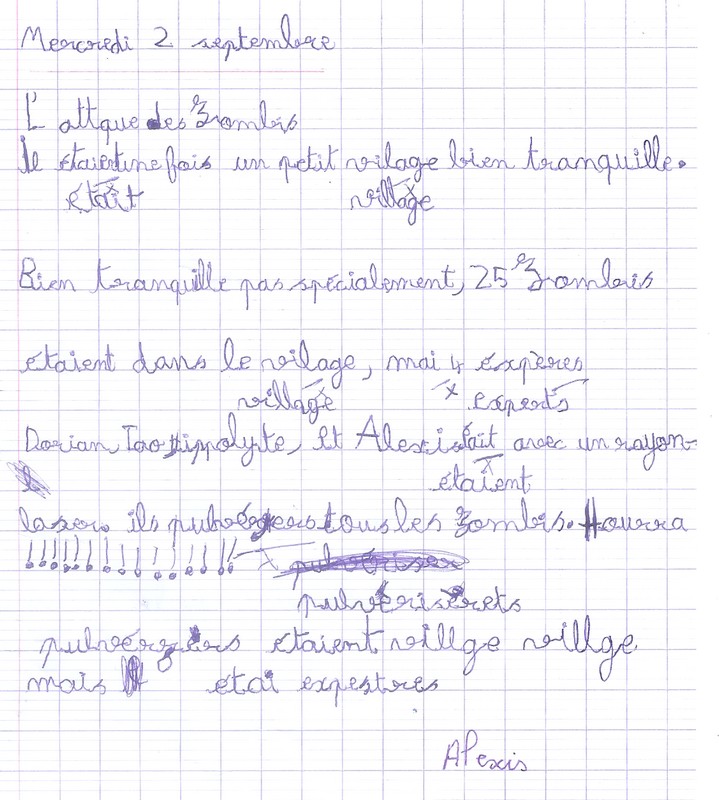 Mercredi 2 septembre
L'attque des Zombis
Il étaient une fois un petit vilage bien tranquille.
était village
Bien tranquille pas spécialement, 25 Zombis
étaient dans le vilage, mai 4 expères
village x experts
Dorian, Tao Hippolyte, et Alexis était avec un rayon-
étaient
laser ils tous les Zombis. Hourra
!!!!!!!!!!!!!!!!! x
pulvérisèrets
étaient villge villge
mais étai expestres
Alexis